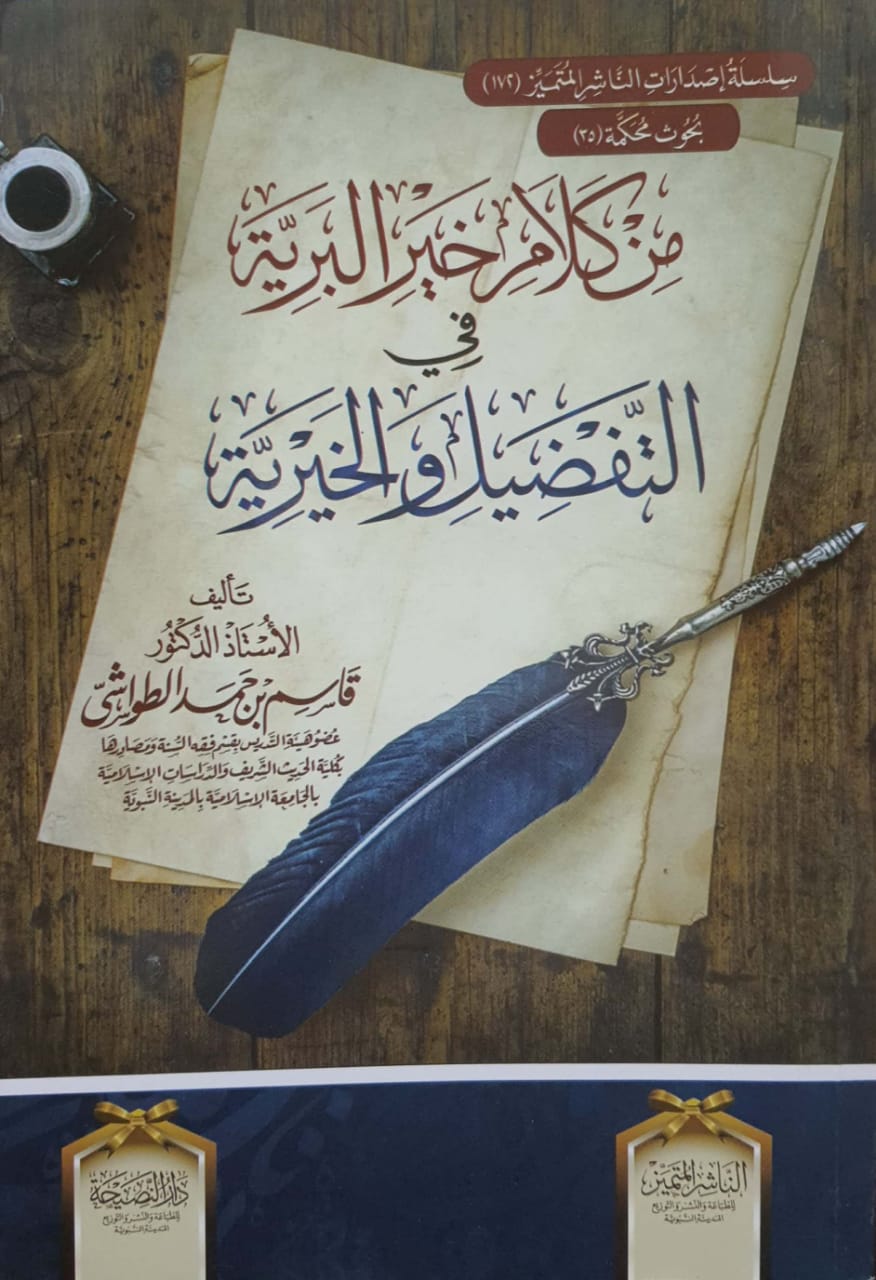 سِلسلَةُ إصْدَارَاتِ النَّاشِرِ المُتَمَيِّز (١٧٢)
بُحُوث مُحَكَّمَة (٣٥)
مِنْ كَلَامِ خَيْرِ البَرِيَّةِ
فِي
التَّفْضِيلِ وَالخَيْرِيَّةِ
تَأليف
الأُسْتَاذ الدُّكتُور
قَاسِم بْن حَمَد الطواشي
عضُو هَيئة التَّدريس بقِسْم فقه السُّنة وَمَصَادِرهَا
بكُلية الحَديث الشَّريف وَالدِّرَاسَات الإسْلَاميَّة
بالجَامعَة الإسْلَاميَّة بالمَدينَة النَّبويَّة
النَّاشر المُتَميِّز
للطبَاعَة والنّشر والتوزيع
المَدينَة النّبَويَّة
دَارُ النَّصِيحَة
للطبَاعَة والنّشر والتوزيع
المَدينَة النّبَويَّة